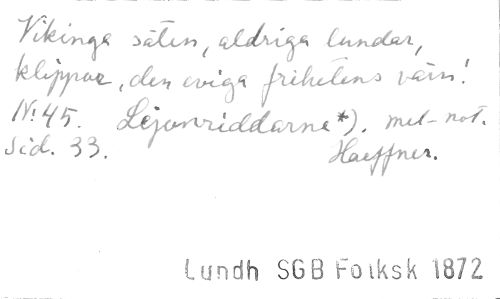 Vikinga säten, aldriga lundar,
klippor, den eviga frihetens värn!
No 45. Lejonriddarne*). mel-not.
Sid. 33. Haeffner.
Lundh SGB Folksk 1872